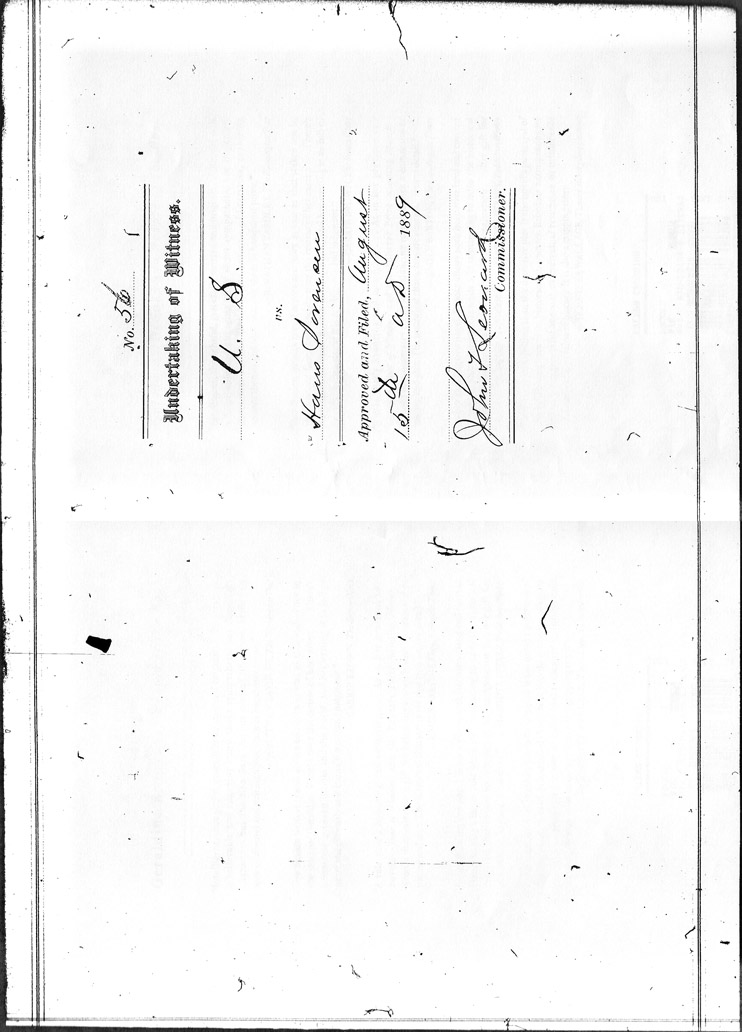 No. 56
Undertaking of Witness.
U. S.
vs.
Hans Sorensen
Approved and Filed, August
15th A D 1889
John T Leonard
Commissioner.